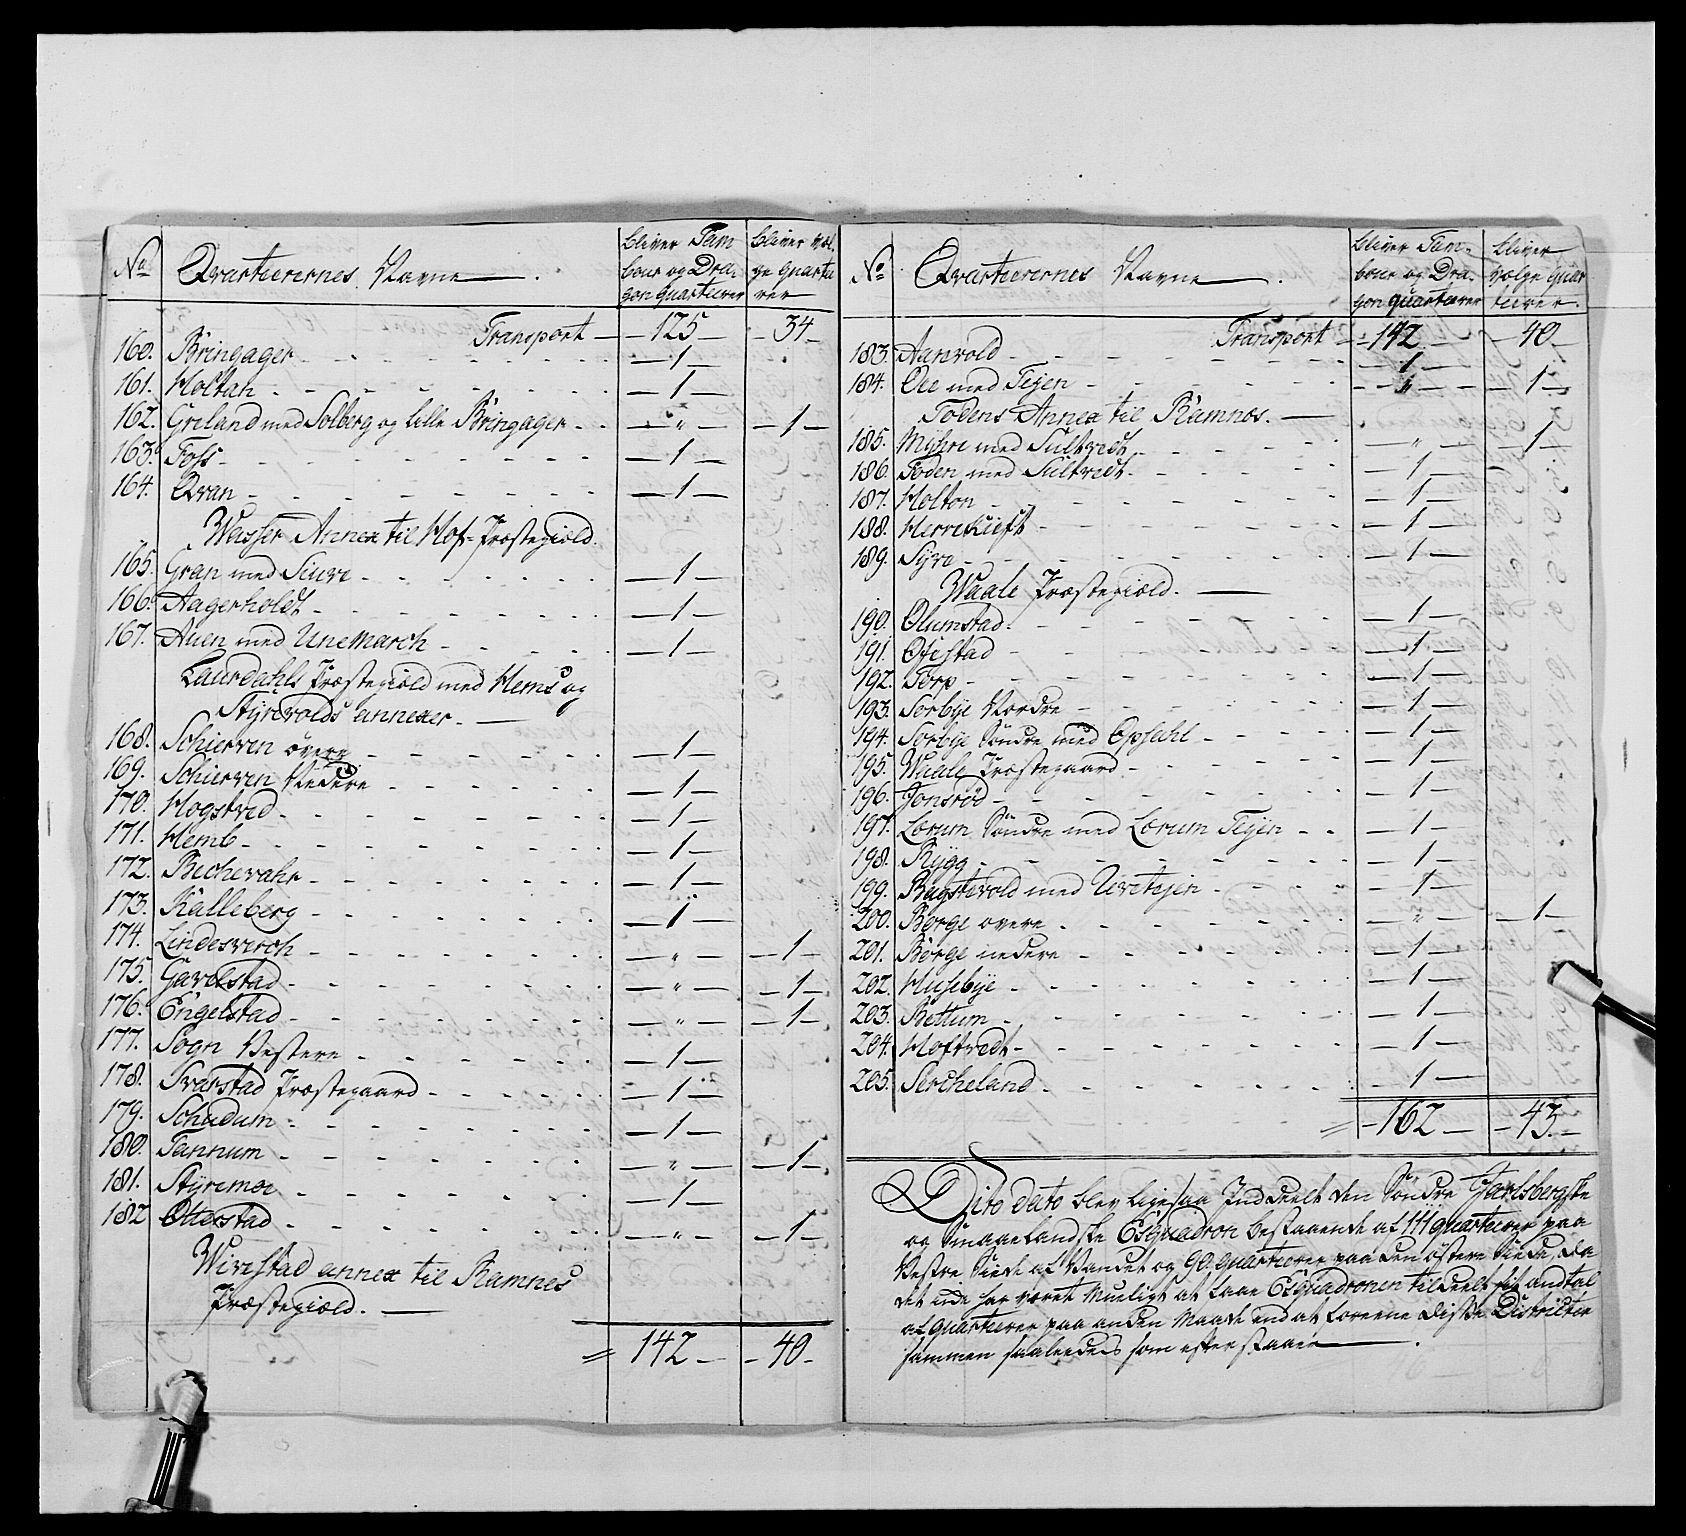 No Qvarteerernes Navne bliver Tam
bour og Dra-
gon quarteerer bliver Vel-
ge quartee
rer
Transport — 125 — 34 —
160. Bringager — 1 —
161. Holtan — 1 —
162. Greland med Solberg og lille Bringager — " — — 1 —
163. Foss — 1 —
164. Qvan — 1 —
Wasser Annex til Hof-Præstegiæld.
165. Gran med Siure — 1 —
166. Aagerholdt — 1 —
167. Auen med Unemarch — 1 —
Laurdahls Præstegiæld med Hems og
Styrvolds annexer. —
168. Schierven övere — 1 —
169. Schierven Nedere — 1 —
170. Hogstved — 1 —
171. Hemb — 1 —
172. Bechevahr — 1 —
173. Kalleberg — 1 —
174. Lindesverch — " — — 1 —
175. Gavelstad — " — — 1 —
176. Engelstad — " — — 1 —
177. Sogn Vestere — 1 —
178. Svarstad Præstegaard — 1 —
179. Schudum — 1 —
180. Tannum — " — — 1 —
181. Styrmoe — 1 —
182 Otterstad — " — — 1 —
Wivestad annex til Ramnes
Præstegiæld. —
= 142 — 40 —
No Qvarteerernes Navne bliver Tam-
bour og Dra-
gon quarteerer bliver
Velge quar
teerer.
Transport — 142 — 40 —
183. Aanvold — 1 —
184. Öee med Teyen — " — — 1 —
Fodens Annex til Ramnæs. —
185. Myhre med Sultvedt — " — 1 —
186. Foden med Sultvedt — 1 —
187. Holton — 1 —
188. Herrekiest — 1 —
189. Syre — 1 —
Waale Præstegiæld. —
190. Olumstad — 1 —
191. Ofestad — 1 —
192. Torp — 1 —
193. Sorbye Nordre — 1 —
194. Sorbye Söndre med Opsahl — 1 —
195. Waale Præstegaard — 1 —
196. Jonsröd — 1 —
197. Lorum Söndre med Lorum Teyen — 1 —
198. Rygg — 1 —
199. Bagstevold med — 1 —
200. Borge overe — " — — 1 —
201. Borge nedere — 1 —
202. Husebye — 1 —
203. Bettum — 1 —
204. Hoftvedt — 1 —
205. Sercheland — 1 —
= 162 — 43 —
Dito dato blev ligesaa Inddeelt den Söndre Jarlsbergske
og Smaalandske Esquadron bestaaende af 111 quarteerer paa
Vestre Siide af Vandet og 90 quarteerer paa den östere Siide, da
det icke har været Mueligt at faae Esquadronen tildeelt sit andtal
af quarteerer paa anden Maade end at foreene disse Districter
sammen saaledes som efterstaaer —.